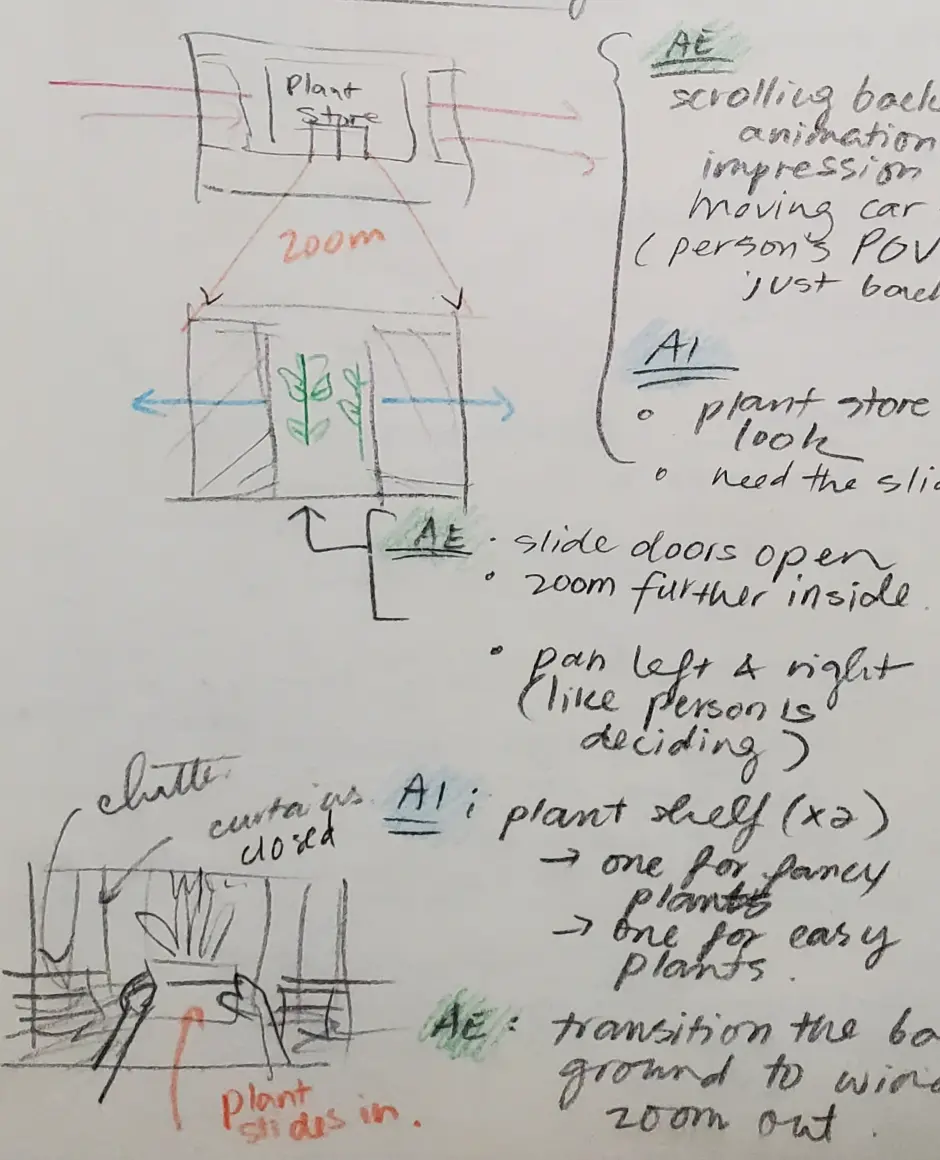 Plant
Store
zoom
AE
scrolling back
animation
impression
moving car
(person's POV
just back
AI
plant store
look
need the slid
AE
slide doors open
zoom further inside.
pan left & right
(like person is
deciding)
curtains
closed
AI:
plant shelf (x2)
→ one for fancy
plants
→ one for easy
plants.
AE: transition the ba
ground to wind
zoom out.
plant
slides in.